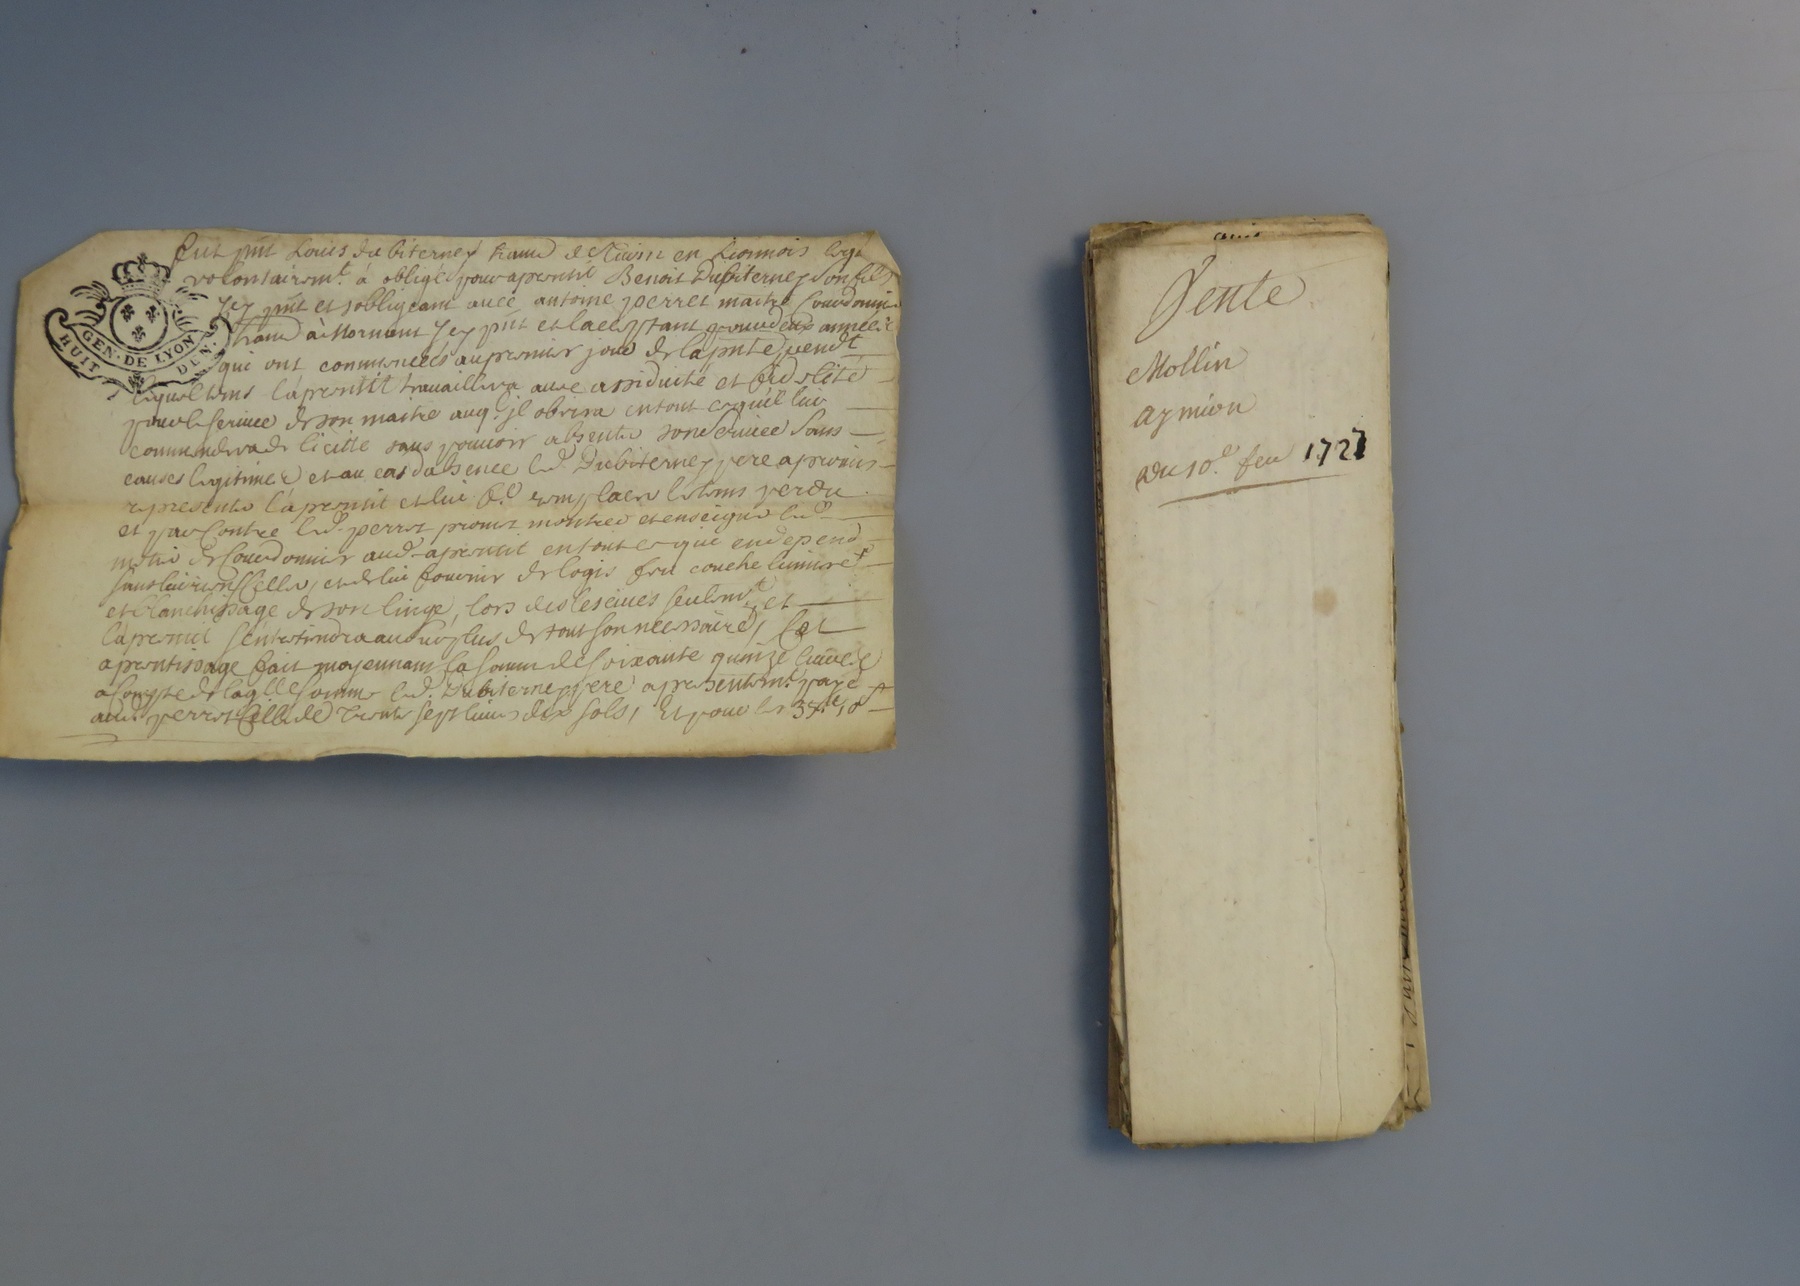 fut pnt Louis Dubiterney hand de en Lionnois lequel
volontairemt. a obligé pour aprentif Benoit Dubiterney son fils
Jcy pnt et sobligeant avec antoine perret maitre Courdonnier
hand à Mornant Jcy pnt et laceptant pour deux années
qui ont commencées au premier jour de la pnte,
lequel tems l'aprentif travaillera avec assiduité et fidelité
pour le service de son maitre auql. il obeira en tout ce qu'il lui
commandera de licitte sans pouvoir absenter son service sans
causes legitimes et au cas d'absence led. Dubiterney pere a promis
representer l'aprentif et lui fe. remplacer le tems perdu
et par Contre led. perret promet montrer et enseigner led.
metier de Courdonnier aud. aprentif en tout ce qui en depend
sans lui rien Celler, et de lui fournir de logis feu couche lumiere
et blanchissage de son linge, lors des lescives seulemt. et
l'aprentif s'entretiendra au surplus de tout son necessaire, Cet
aprentissage fait moyennant la somme de soixante quinze livres
a Compte de laqlle somme led. Dubiterney pere a presentemt. payé
aud. perret Celle de trente sept livres dix sols, Et pour les 37 lt 10 s
GEN. DE LYON
HUIT DUN.
Vente
Mollin
aymion
Du 10e. feu 1727